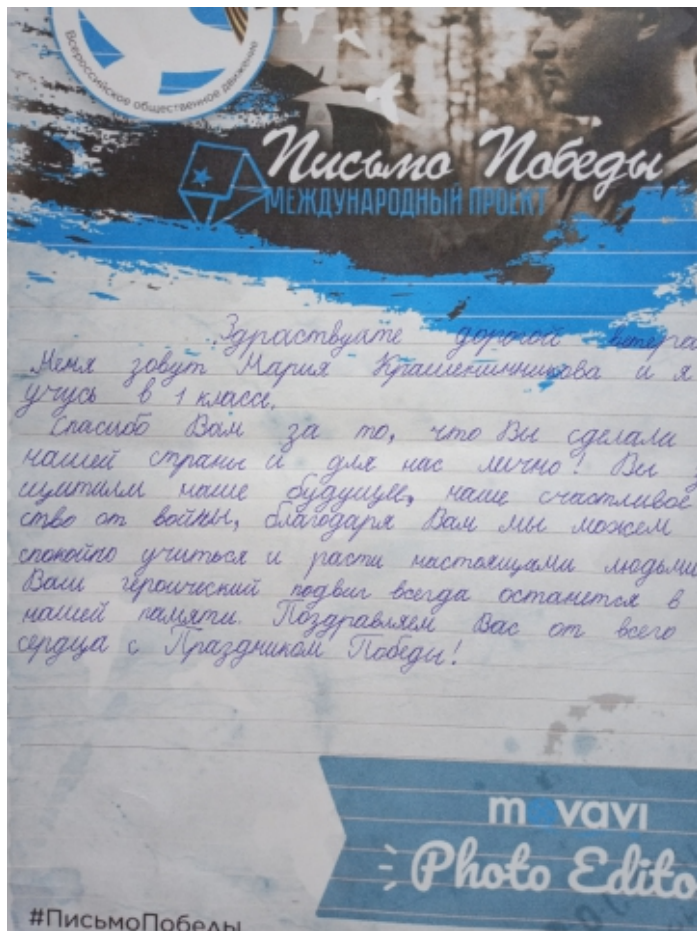 Всероссийское общественное движение
Письмо Победы
МЕЖДУНАРОДНЫЙ ПРОЕКТ
Здраствуате дорогой ветера
Меня зовут Мария Крашенинникова и я
учусь в 1 класе.
Спасибо Вам за то, что Вы сделали
нашей страны и для нас лично! Вы
щитили наше будущее, наше счастливое
ство от войны, благодаря Вам мы можем
спокойно учиться и расти настоящами людьми
Ваш героический подвиг всегда останется в
нашей памяти. Поздравляем Вас от всего
сердца с Праздником Победы!
movavi
Photo Edito
#ПисьмоПобеды